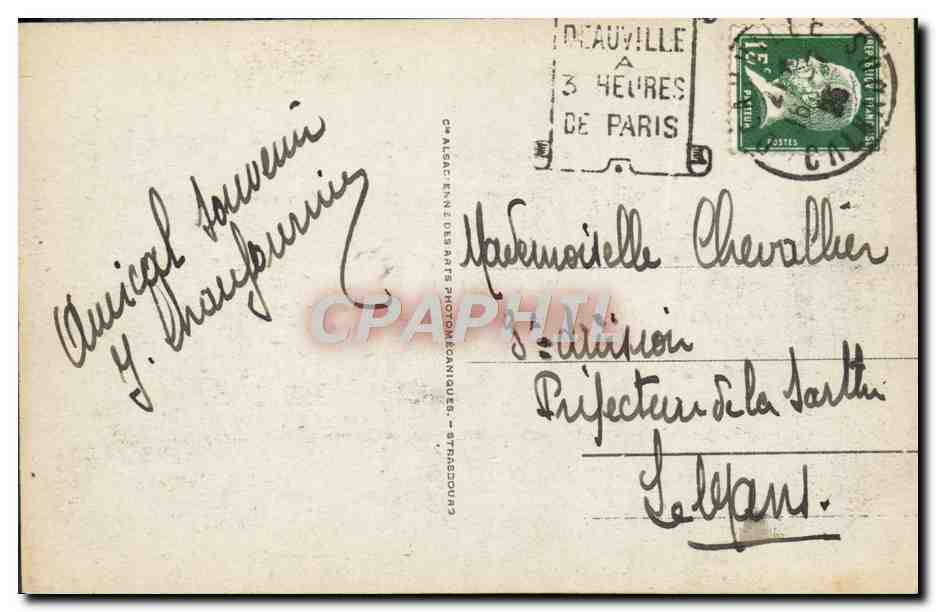 DEAUVILLE
A
3 HEURES
DE PARIS
REPUBLIQUE FRANCAISE
15c
PASTEUR
POSTES
CALVADOS
Amical souvenir
Cie ALSACIENNE DES ARTS PHOTOMÉCANIQUES. — STRASBOURG
Mademoiselle Chevallier
3e division
Préfecture de la Sarthe
Le Mans.
CPAPHIL